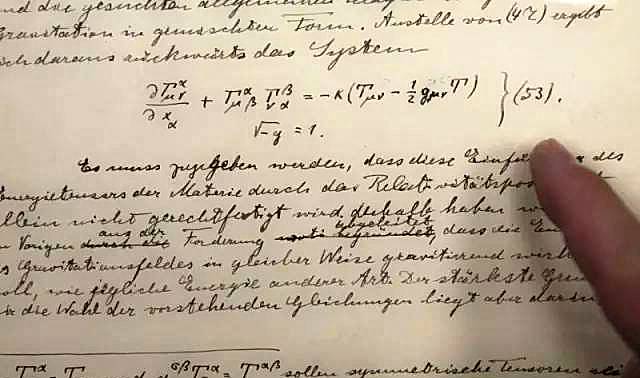 und die gesuchten allgemeinen
Gravitation in gemischter Form. Anstelle von (47) ergibt
sich daraus rückwärts das System
∂Γ^α_μν/∂x_α + Γ^α_μβ Γ^β_να = -κ(T_μν - 1/2 g_μν T) } (53).
√-g = 1.
Es muss zugegeben werden, dass diese Einfüh des
Energietensors der Materie durch das Relativitätspos
allein nicht gerechtfertigt wird. deshalb haben
Vorigen durch die aus der Forderung abgeleitet, dass die
Gravitationsfeldes in gleicher Weise gravitierend
soll, wie jegliche Energie anderer Art. Der stärkste
die Wahl der vorstehenden Gleichungen liegt aber darin
sollen symmetrische Tensoren